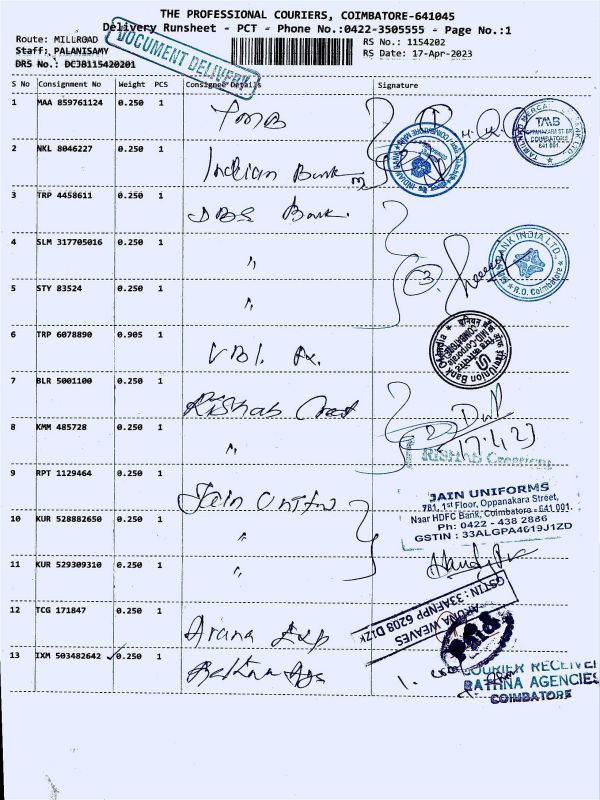 THE PROFESSIONAL COURIERS, COIMBATORE-641045
Delivery Runsheet - PCT - Phone No.:0422-3505555 - Page No.:1
Route: MILLROAD
RS No.: 1154202
Staff: PALANISAMY
RS Date: 17-Apr-2023
DRS No.: DCJB115420201
DOCUMENT DELIVERY
S No Consignment No Weight PCS Consignee Details Signature
1 MAA 859761124 0.250 1 TMB
TMB
OPPANAKARA ST-BR
COIMBATORE
641 001.
2 NKL 8046227 0.250 1 Indian Bank
3 TRP 4458611 0.250 1 DBS Bank.
4 SLM 317705016 0.250 1 "
BANK INDIA LTD.,
R.O. Coimbatore
5 STY 83524 0.250 1 "
6 TRP 6078890 0.905 1
Union Bank Of India
7 BLR 5001100 0.250 1 Rishab
8 KMM 485728 0.250 1 "
17.4.23
RISHAB CREATION
9 RPT 1129464 0.250 1 Jain
JAIN UNIFORMS
781, 1st Floor, Oppanakara Street,
Naar HDFC Bank, Coimbatore - 641 001.
Ph: 0422 - 438 2886
GSTIN : 33ALGPA4619J1ZD
10 KUR 528882650 0.250 1 "
11 KUR 529309310 0.250 1 "
12 TCG 171847 0.250 1 Aruna Exp
ARUNA WEAVES
GSTIN : 33AFNPP 6208 D1ZK
13 IXM 503482642 0.250 1 Rathna Ags
COURIER RECEIVE
RATHNA AGENCIES
COIMBATORE